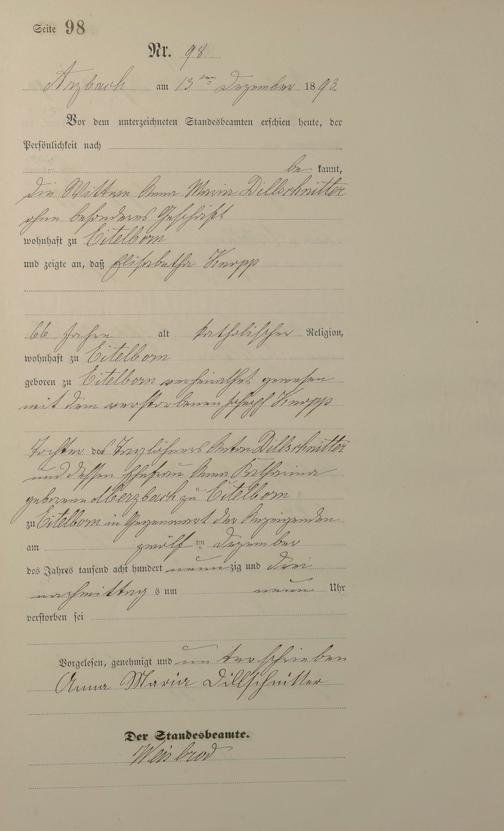 Seite 98
Nr. 98
Arzbach am 13ten Dezember 1893
Vor dem unterzeichneten Standesbeamten erschien heute, der
Persönlichkeit nach
be kannt,
die Wittwe Anna Maria Dillschnitter
ohne besonderes Geschäft
wohnhaft zu Eitelborn
und zeigte an, daß Elisabetha Knopp
66 Jahre alt katholischer Religion,
wohnhaft zu Eitelborn
geboren zu Eitelborn verheirathet gewesen
mit dem verstorbenen Knopp
Tochter des Taglöhners Anton Dillschnitter
und dessen Ehefrau Anna Katharina
geborene zu Eitelborn
zu Eitelborn in Gegenwart der Anzeigenden
am zwölften Dezember
des Jahres tausend acht hundert neunzig und drei
nachmittags um neun Uhr
verstorben sei
Vorgelesen, genehmigt und unterschrieben
Anna Maria Dillschnitter
Der Standesbeamte.
Weisbrod